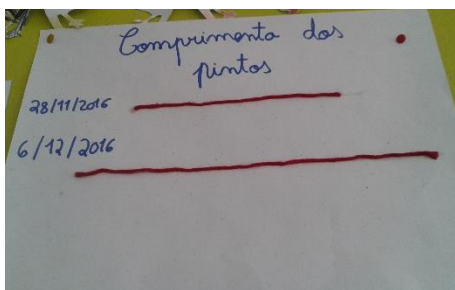 Comprimento dos
pintos
28/11/2016
6/12/2016